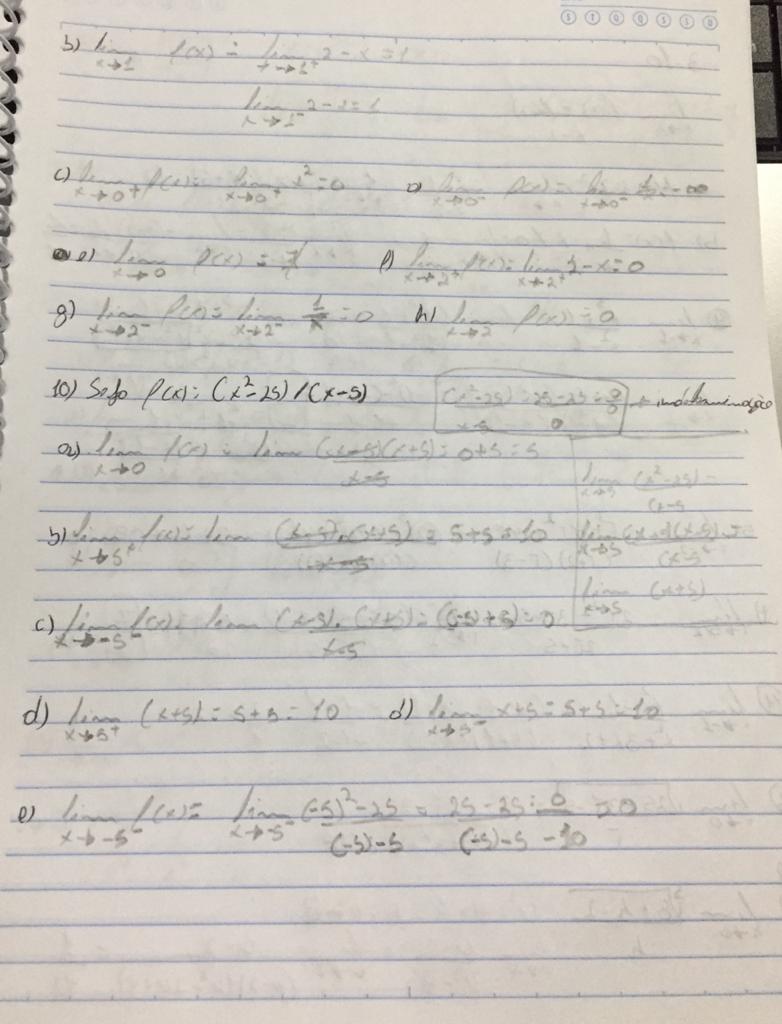 b) lim x→1 f(x) = lim x→1⁺ 2-x=1
lim x→1⁻ 2-x=1
c) lim x→0⁺ f(x)= lim x→0⁺ x²=0 lim x→0⁻ f(x)= lim x→0⁻ = -∞
e) lim x→0 f(x) = ∄ f) lim x→2⁺ f(x)= lim x→2⁺ 2-x=0
g) lim x→2⁻ f(x)= lim x→2⁻ =0 h) lim x→2 f(x)=0
10) Seja f(x)= (x²-25) / (x-5) (x²-25)/(x-5) = 25-25/0 = 0/0 → indeterminação
a) lim x→0 f(x) = lim (x-5)(x+5)/(x-5) = 0+5=5
lim x→5 (x²-25)/(x-5) =
b) lim x→5⁺ f(x)= lim (x-5).(x+5)/(x-5) = 5+5=10 lim x→5 (x+5)(x-5)/(x-5) =
lim x→5 (x+5)
c) lim x→-5⁻ f(x)= lim (x-5).(x+5)/(x-5) = (-5)+5)=0
d) lim x→5⁺ (x+5)=5+5=10 d) lim x→5⁻ x+5=5+5=10
e) lim x→-5⁻ f(x)= lim x→-5⁻ (-5)²-25/(-5)-5 = 25-25/(-5)-5 = 0/-10 = 0